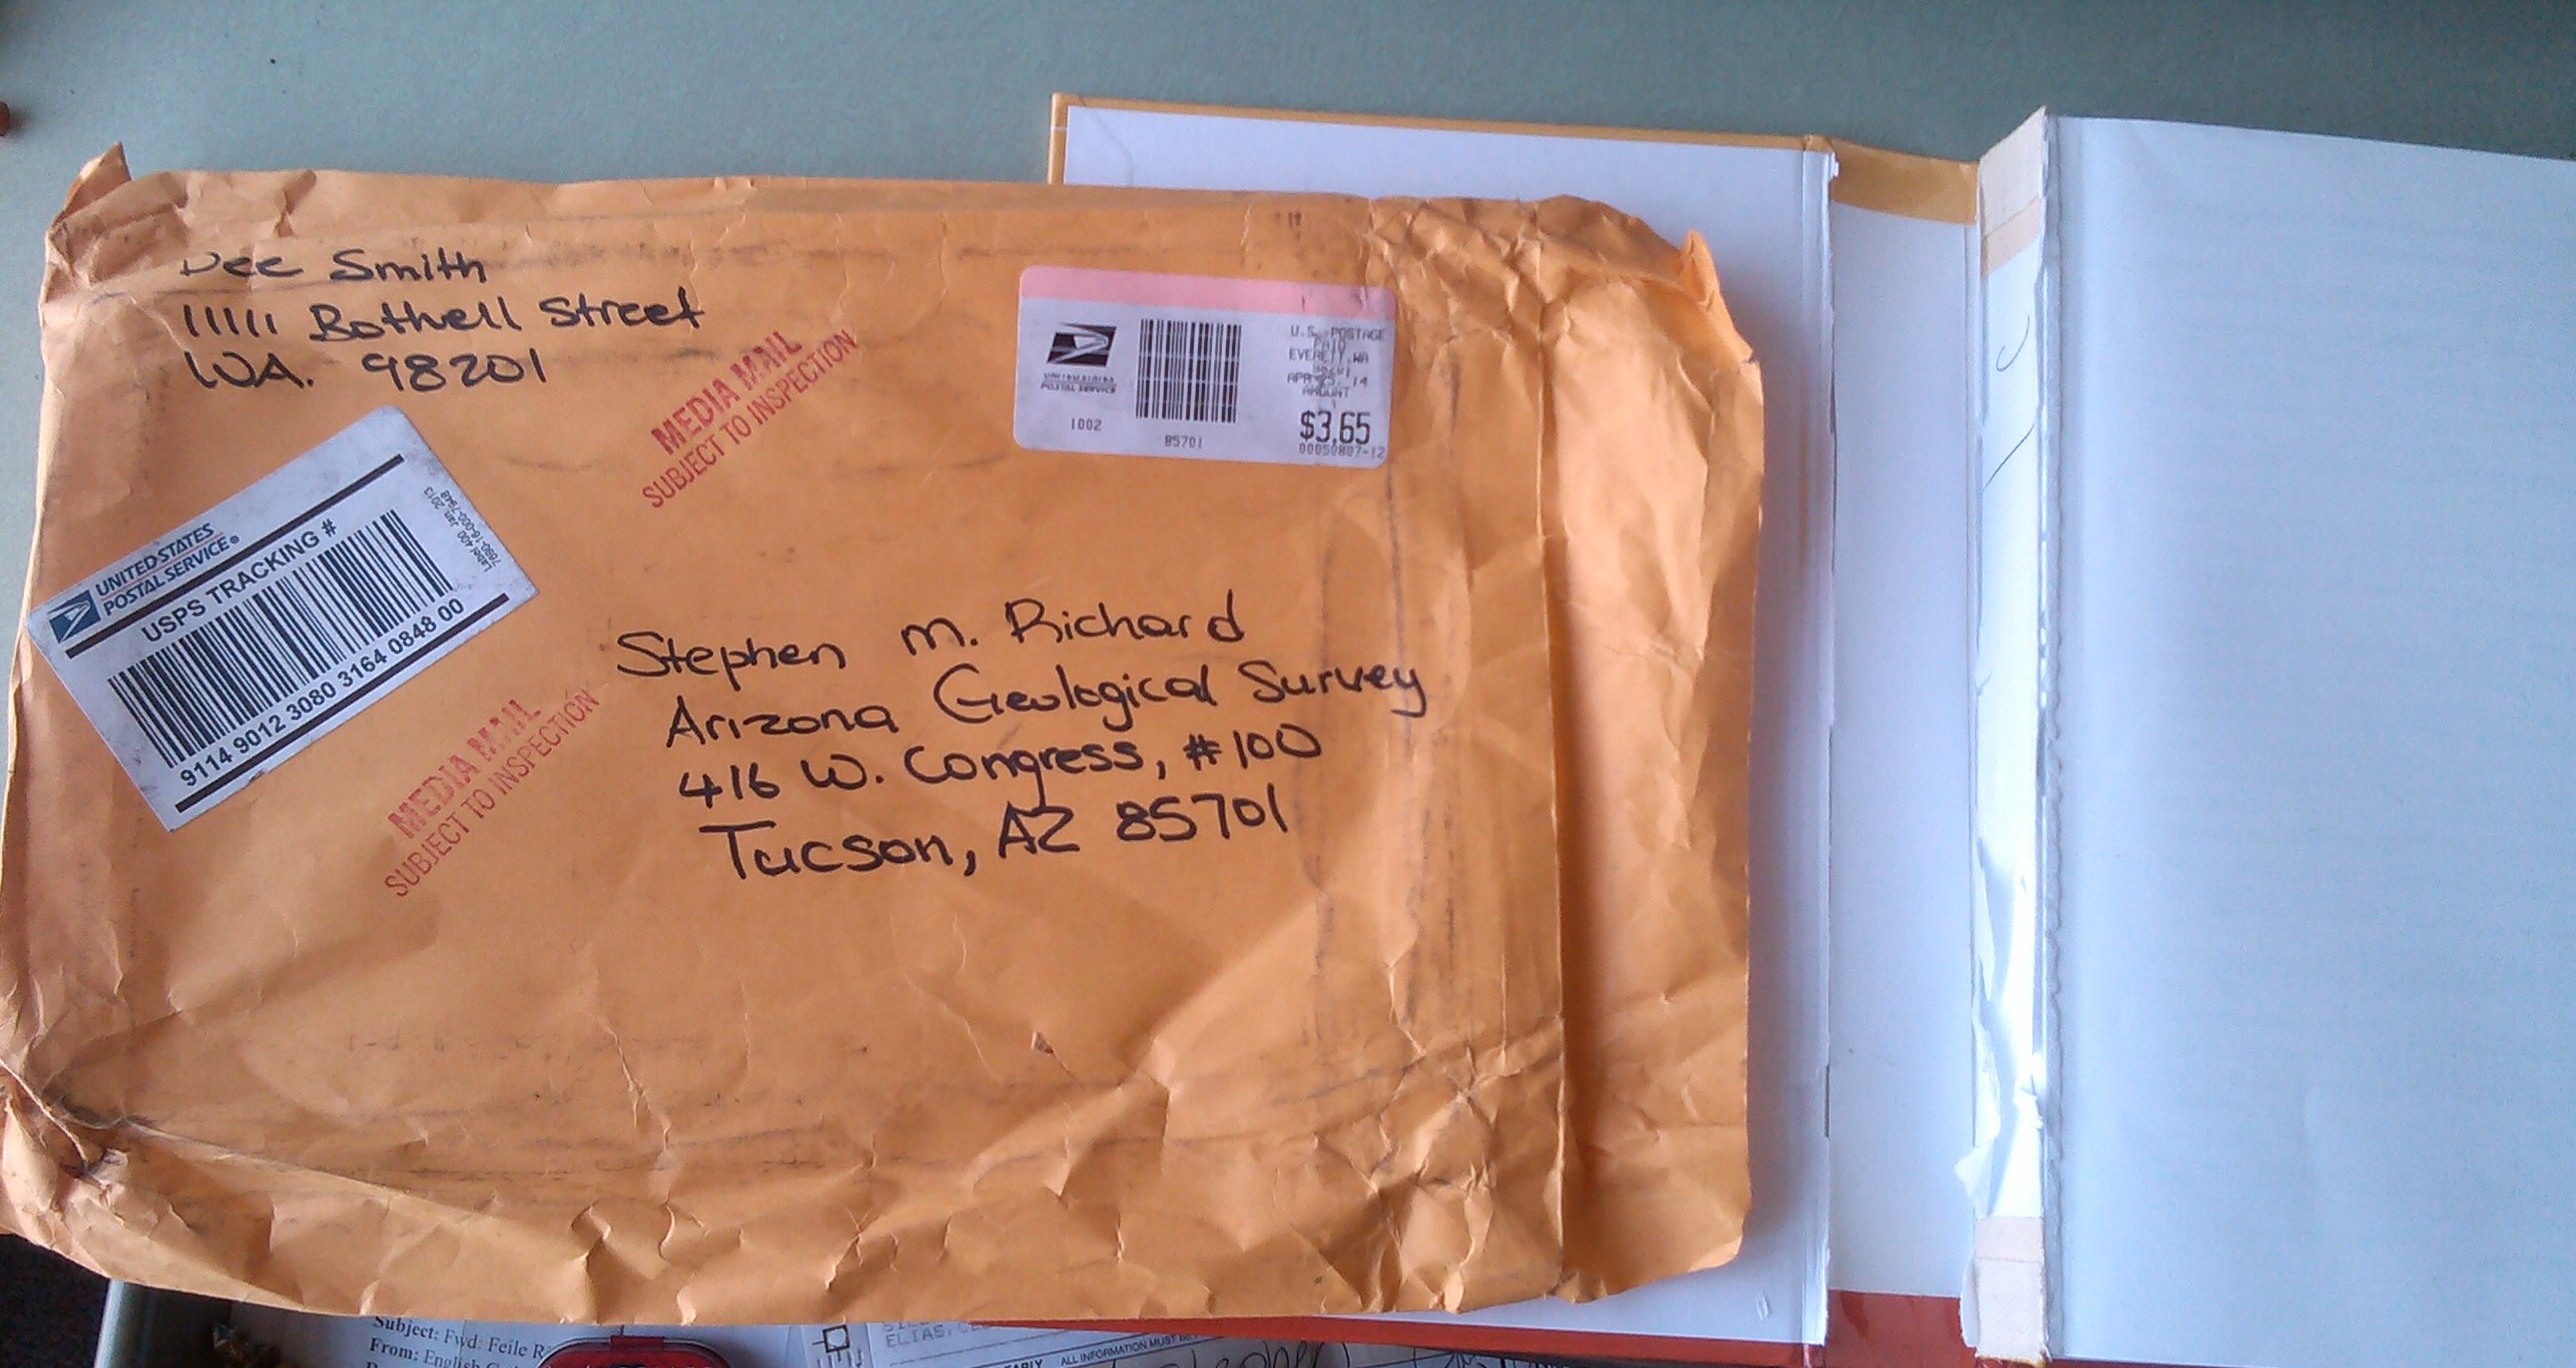 Dee Smith
11111 Bothell Street
WA. 98201
MEDIA MAIL
SUBJECT TO INSPECTION
U.S. POSTAGE
PAID
EVERETT, WA
APR 25, 14
AMOUNT
$3.65
00050807-12
UNITED STATES
POSTAL SERVICE
1002
85701
UNITED STATES
POSTAL SERVICE®
USPS TRACKING #
9114 9012 3080 3164 0848 00
Label 400 Jan. 2013
7690-16-000-7948
MEDIA MAIL
SUBJECT TO INSPECTION
Stephen M. Richard
Arizona Geological Survey
416 W. Congress, #100
Tucson, AZ 85701
Subject: Fwd: Feile
From: English
ELIAS,
ALL INFORMATION MUST